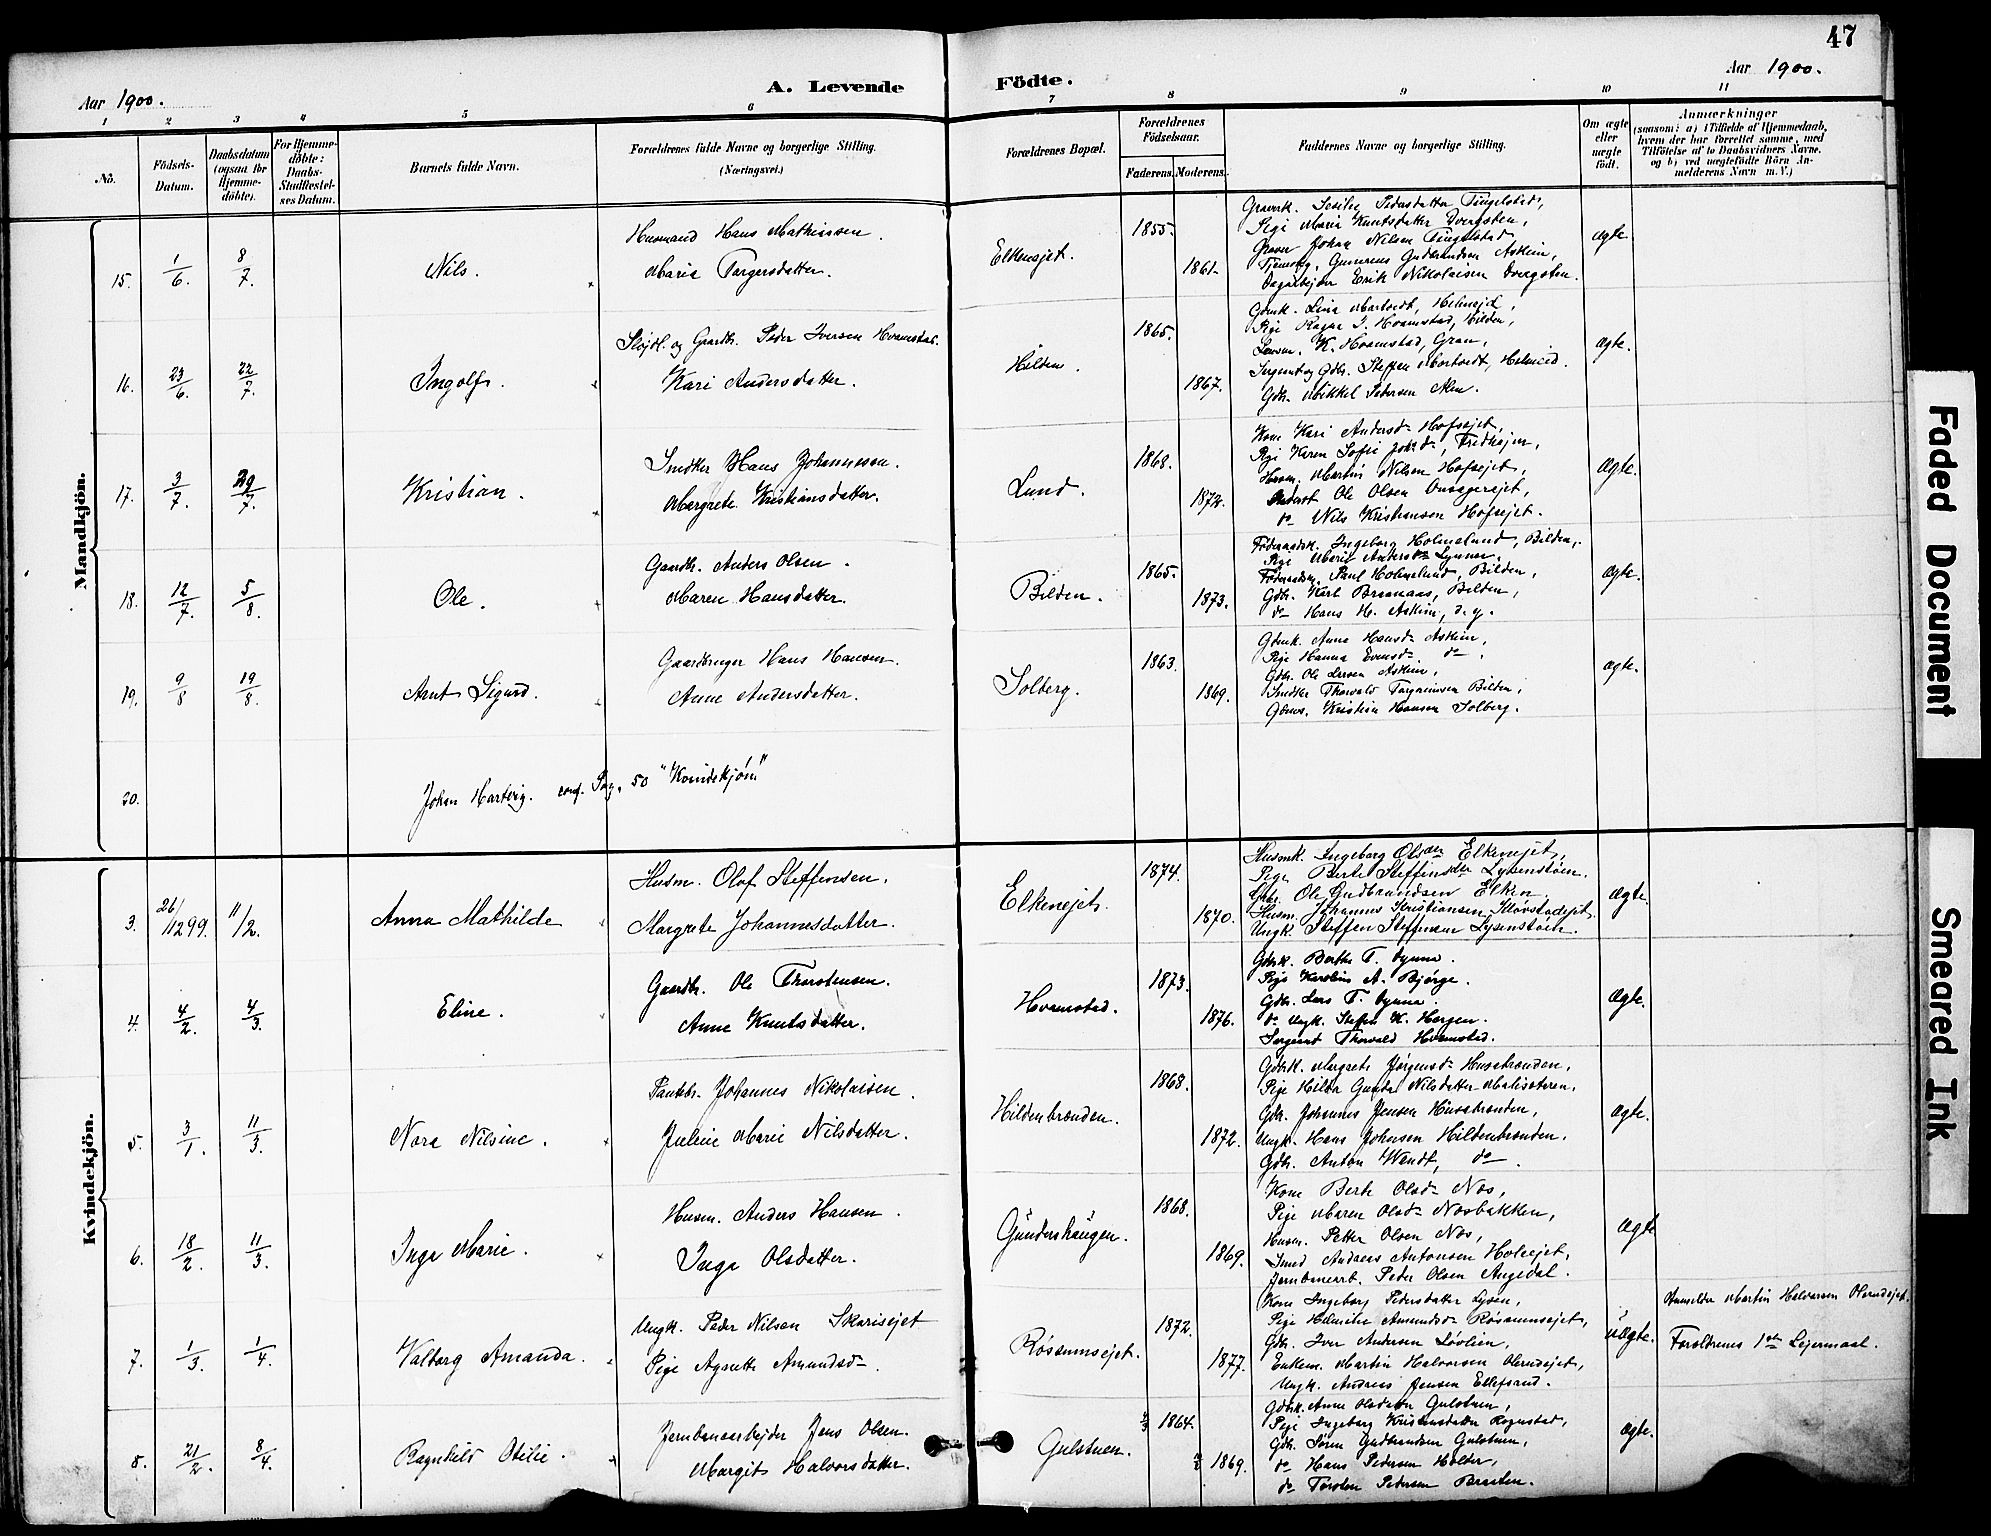 47
Aar 1900.
A. Levende Födte.
Aar 1900.
1 2 3 4 5 6 7 8 9 10 11
No.
Födsels-Datum.
Daabsdatum (ogsaa for Hjemme-døbte).
For Hjemme-døbte: Daabs-Stadfæstel-ses Datum.
Barnets fulde Navn.
Forældrenes fulde Navne og borgerlige Stilling. (Næringsvei.)
Forældrenes Bopæl.
Forældrenes Födselsaar.
Faderens. Moderens.
Faddernes Navne og borgerlige Stilling.
Om ægte eller uægte født.
Anmærkninger
(saasom: a) i Tilfælde af Hjemmedaab,
hvem der har forrettet samme, med
Tilføielse af to Daabsvidners Navne.
og b) ved uægtefødte Børn An-
melderens Navn m. V.)
Mandkjön.
15. 1/6 8/7 Nils.
Husmand Hans Mathiassen.
Marie Torgersdatter.
Elkensejet. 1855. 1861.
Graverk. Sesilie Pedersdatter Tingelstad,
Pige Maria Knutsdatter Dvergsten,
Graver Johan Nilsen Tingelstad
Gudbrandsen Askim,
Dagarbejder Erik Nikolaisen Dvergsten.
ægte.
16. 23/6 22/7 Ingolf.
Sløjdl. og Gaardbr. Peder Iversen Hvamstad.
Kari Andersdatter.
Hilden. 1865. 1867.
K. Hvamstad, Gran,
Sergeant og Gdbr. Steffen
Gdbr. Mikkel Pedersen Alm.
ægte.
17. 3/7 29/7 Kristian.
Snedker Hans Johannessen.
Margrete Kristiansdatter.
Lund. 1868. 1872.
Kone Kari Andersd- Hofsejet,
Pige Karen Sofie Johsd-
Husm. Martin Nilsen Hofsejet,
Ole Olsen
do Nils Kristiansen Hofsejet.
ægte.
18. 12/7 5/8 Ole.
Gaardbr. Anders Olsen.
Maren Hansdatter.
Bilden. 1865. 1873.
Føderaadsk. Ingeborg Holmelund, Bilden,
Pige Marie Andersd- Lynner.
Føderaadsm. Paul Holmelund, Bilden,
Gdbr. Karl Braanaas, Bilden,
do Hans H. Askim, d. y.
ægte.
19. 9/8 19/8. Arnt Sigurd.
Gaardbruger Hans Hansen.
Anne Andersdatter.
Solberg. 1863. 1869.
Gdmk. Anne Hansd- Askim,
Pige Hanna Evensd- do.
Gdbr. Ole Larsen Askim,
Snedker Thorvald Torgrimsen Bilden,
Gdms. Kristian Hansen Solberg.
ægte.
20. Johan Hartvig. conf. Pag. 50 "Kvindekjøn"
Kvindekjön.
3. 26/12 99. 11/2. Anna Mathilde
Husm. Olof Steffensen.
Margrete Johannesdatter.
Elkenejet. 1874. 1870.
Husmk. Ingeborg Olsdtr Elkenejet,
Pige Berte Steffensdtr Lysenstøen.
Gbr. Ole Gudbrandsen Elken
Husm. Johannes Kristiansen
Ungk. Steffen Steffensen Lysenstøen.
ægte.
4. 4/2. 4/3. Eline.
Gaardbr. Ole Thorstensen.
Anne Knutsdatter.
Hvamstad. 1873. 1876.
Gdbk. Berthe T. Lynne.
Pige Karoline A. Bjørge.
Gdbr. Lars T. Lynne.
do Ungk. Steffen K. Horgen.
Sergeant Thorvald Hvamstad.
ægte.
5. 3/1. 11/3. Nora Nilsine.
Pankbr. Johannes Nikolaisen.
Juline Marie Nilsdatter.
Hildenbrænden. 1868. 1872.
Gdbk. Margrete Jørgensd- Husebrænden,
Pige Hilda Gunda Nilsdatter
Gdbr. Johannes Jensen Husebrænden,
Ungk. Hans Johnsen Hildenbrænden.
Gdbr. Anton Wendt, do.
ægte.
6. 18/2. 11/3. Inga Marie.
Husm. Anders Hansen.
Inga Olsdatter.
Gundershaugen. 1868. 1869.
Kone Berte Olsd- Næs,
Pige Maren Olsd- Næsbakken,
Husm. Petter Olsen Næs,
Smed Andreas Antonsen Holsejet,
Jernbanearb. Peder Olsen Augedal.
ægte
7. 1/3. 1/4. Valborg Amanda.
Ungk. Peder Nilsen Skarisejet
Pige Agnethe Amundsd-.
Røssumsejet. 1872. 1877.
Kone Ingeborg Pedersdatter Lysen,
Pige Helmine Amundsd- Røssumsejet,
Gdbr. Iver Andersen Løvlien,
Enkem. Martin Halvorsen Olerudsejet,
Ungk. Andreas Jensen Ellefsrud.
uægte.
Anmelder Martin Halvorsen Olerudsejet.
Forældrenes 1ste Lejermaal.
8. 21/2. 8/4. Ragnhild Otilie.
Jernbanearbejder Jens Olsen.
Margit Halvorsdatter.
Gulstuen. 1864. 1869.
Gdbk. Anne Olsdatter Gulstuen,
Pige Ingeborg Kristiansdatter Rognstad,
Gdbr. Søren Gudbrandsen Gulstuen,
do Hans Pedersen Holder,
do Torsten Pedersen Bratten.
ægte.
Faded Document
Smeared Ink